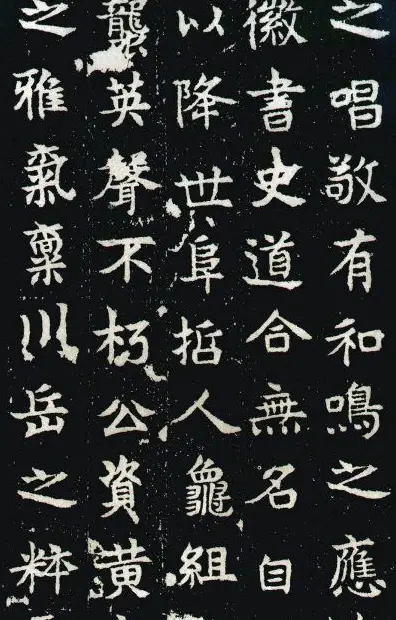 之唱敬有和鳴之應
徽書史道合無名自
以降世阜哲人龜組
龔英聲不朽公資黄
之雅氣稟川岳之粹